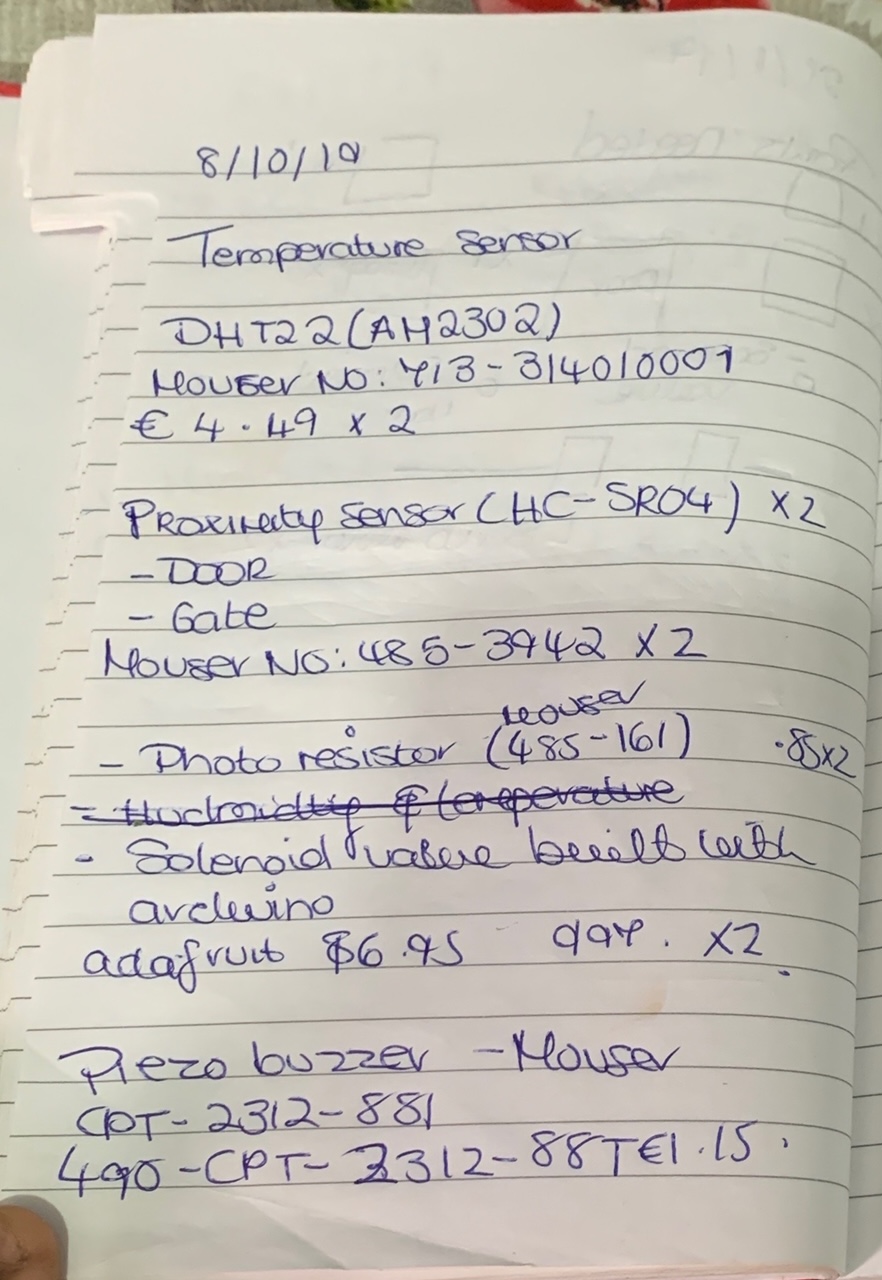 8/10/19
Temperature Sensor
DHT22 (AM2302)
Mouser NO: 713-314010001
€ 4.49 x 2
Proximity Sensor (HC-SR04) x2
- DOOR
- Gate
Mouser NO: 485-3942 x 2
mouser
- Photo resistor (485-161) .85x2
- Humidity & temperature
- Solenoid valve built with
arduino
adafruit $6.95 997. x2
Piezo buzzer - Mouser
CPT-2312-881
490-CPT-2312-88T €1.15.